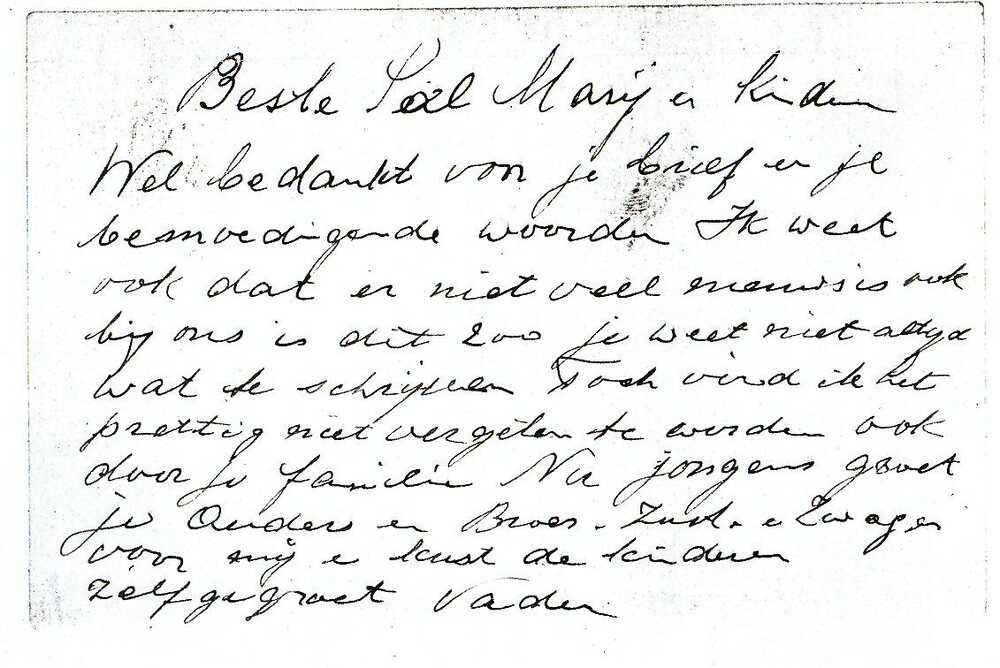 Beste Marij en kinderen
Wel bedankt voor je brief en je
bemoedigende woorden Ik weet
ook dat er niet veel nieuws is ook
bij ons is dit zoo je weet niet altijd
wat te schrijven Toch vind ik het
prettig niet vergeten te worden ook
door je familie Nu jongens groet
je Ouders en Broer. Zust. en Zwager
voor mij en kust de kinderen
Zelf gegroet Vader